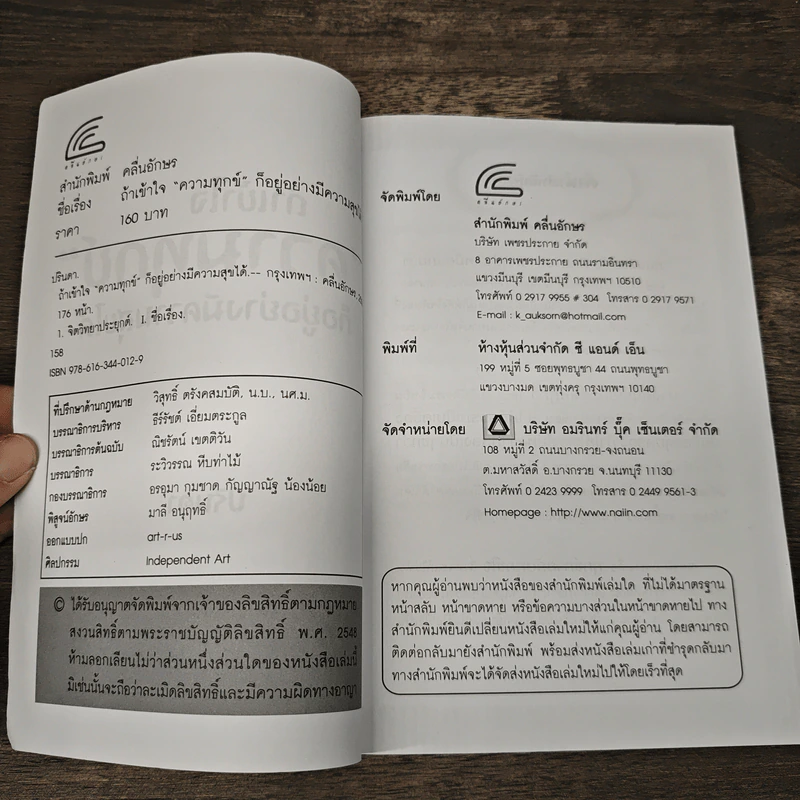 คลื่นอักษร
สำนักพิมพ์ คลื่นอักษร
ชื่อเรื่อง ถ้าเข้าใจ “ความทุกข์” ก็อยู่อย่างมีความสุขได้
ราคา 160 บาท
ปรินดา.
ถ้าเข้าใจ “ความทุกข์” ก็อยู่อย่างมีความสุขได้.-- กรุงเทพฯ : คลื่นอักษร,
176 หน้า.
1. จิตวิทยาประยุกต์. I. ชื่อเรื่อง.
158
ISBN 978-616-344-012-9
ที่ปรึกษาด้านกฎหมาย วิสุทธิ์ ตรังคสมบัติ, น.บ., นศ.ม.
บรรณาธิการบริหาร ธีร์รัชต์ เอี่ยมตระกูล
บรรณาธิการต้นฉบับ ณิชรัตน์ เขตติวัน
บรรณาธิการ ระวิวรรณ หีบท่าไม้
กองบรรณาธิการ อรอุมา กุมชาด กัญญาณัฐ น้องน้อย
พิสูจน์อักษร มาลี อนุฤทธิ์
ออกแบบปก art-r-us
ศิลปกรรม Independent Art
© ได้รับอนุญาตจัดพิมพ์จากเจ้าของลิขสิทธิ์ตามกฎหมาย
สงวนสิทธิ์ตามพระราชบัญญัติลิขสิทธิ์ พ.ศ. 2548
ห้ามลอกเลียนไม่ว่าส่วนหนึ่งส่วนใดของหนังสือเล่มนี้
มิเช่นนั้นจะถือว่าละเมิดลิขสิทธิ์และมีความผิดทางอาญา
คลื่นอักษร
จัดพิมพ์โดย
สำนักพิมพ์ คลื่นอักษร
บริษัท เพชรประกาย จำกัด
8 อาคารเพชรประกาย ถนนรามอินทรา
แขวงมีนบุรี เขตมีนบุรี กรุงเทพฯ 10510
โทรศัพท์ 0 2917 9955 # 304 โทรสาร 0 2917 9571
E-mail : k_auksorn@hotmail.com
พิมพ์ที่ ห้างหุ้นส่วนจำกัด ซี แอนด์ เอ็น
199 หมู่ที่ 5 ซอยพุทธบูชา 44 ถนนพุทธบูชา
แขวงบางมด เขตทุ่งครุ กรุงเทพฯ 10140
จัดจำหน่ายโดย บริษัท อมรินทร์ บุ๊ค เซ็นเตอร์ จำกัด
108 หมู่ที่ 2 ถนนบางกรวย-จงถนอน
ต.มหาสวัสดิ์ อ.บางกรวย จ.นนทบุรี 11130
โทรศัพท์ 0 2423 9999 โทรสาร 0 2449 9561-3
Homepage : http://www.naiin.com
หากคุณผู้อ่านพบว่าหนังสือของสำนักพิมพ์เล่มใด ที่ไม่ได้มาตรฐาน
หน้าสลับ หน้าขาดหาย หรือข้อความบางส่วนในหน้าขาดหายไป ทาง
สำนักพิมพ์ยินดีเปลี่ยนหนังสือเล่มใหม่ให้แก่คุณผู้อ่าน โดยสามารถ
ติดต่อกลับมายังสำนักพิมพ์ พร้อมส่งหนังสือเล่มเก่าที่ชำรุดกลับมา
ทางสำนักพิมพ์จะได้จัดส่งหนังสือเล่มใหม่ไปให้โดยเร็วที่สุด